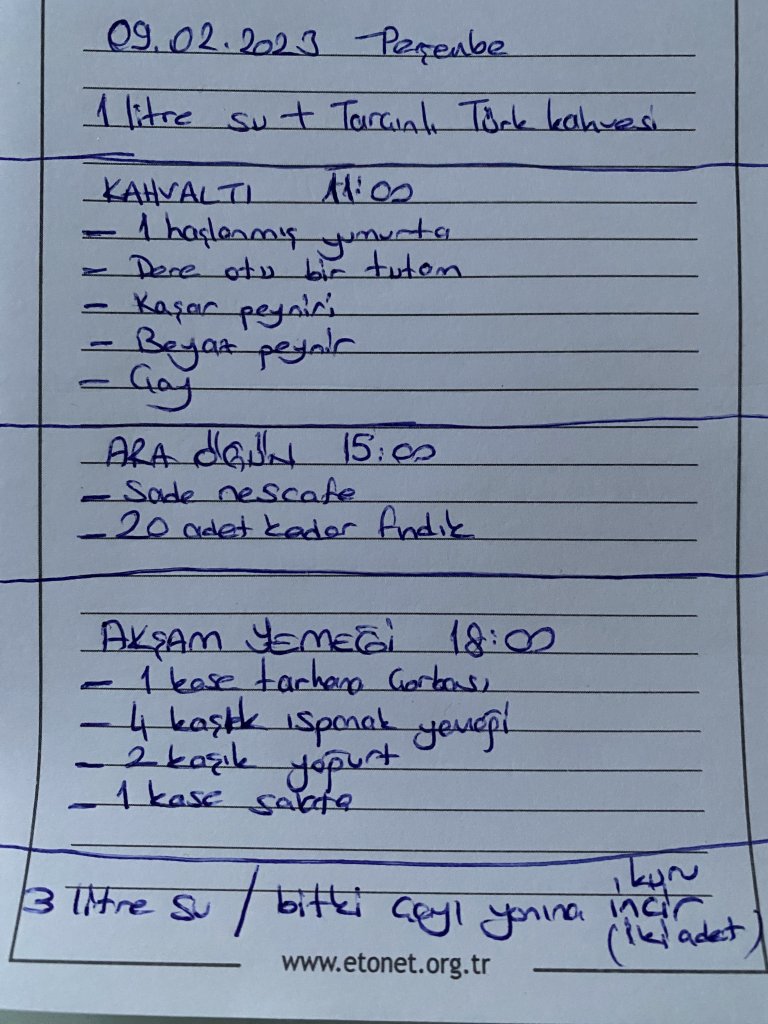 09.02.2023 Perşenbe
1 litre su + Tarçınlı Türk kahvesi
KAHVALTI 11:00
- 1 haşlanmış yumurta
- Dere otu bir tutam
- Kaşar peyniri
- Beyaz peynir
- Çay
ARA ÖĞÜN 15:00
- Sade nescafe
- 20 adet kadar fındık
AKŞAM YEMEĞİ 18:00
- 1 kase tarhana Çorbası
- 4 kaşık ıspanak yemeği
- 2 kaşık yoğurt
- 1 kase salata
3 litre su / bitki çayı yanına kuru incir
(iki adet)
www.etonet.org.tr